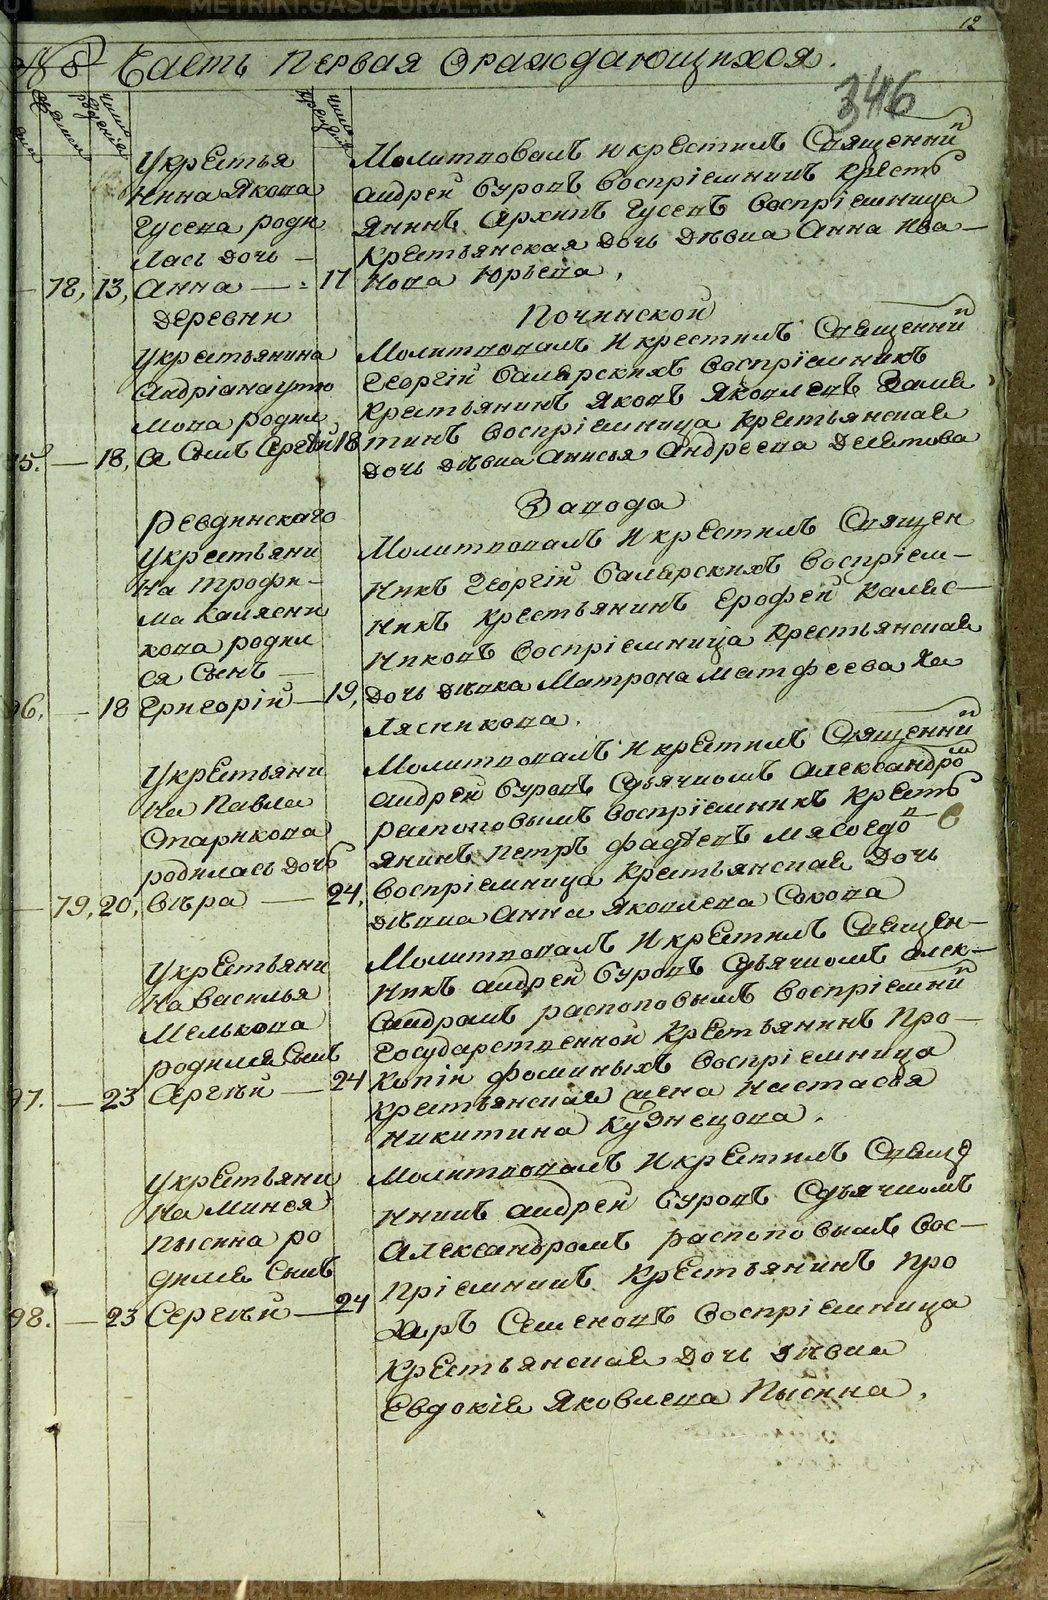 METRIKI.GASO-URAL.RU
12
№ 8 Часть Первая Ораждающихся.
346
число рожденія
число крещенія
Укрестья
нина Якова
Гусева роди
лась дочь —
— 78, 13, Анна — 17
Молитвовалъ и крестилъ Священни
Андрей Буровъ воспріемникъ кресть
янинъ Архипъ Гусевъ воспріемница
Крестьянская дочь дѣвка Анна Ива—
нова Юрьева.
Деревни Починской
Укрестьянина
Андріана
мова родил
95. — 18, ся Сынъ Сергѣй 18
Молитвовалъ и крестилъ Священни
Георгій Балерскихъ воспріемникъ
крестьянинъ Яковъ Яковлевъ Заме
тинъ воспріемница крестьянская
дочь дѣвка Анисья Андреева
Ревдинскаго Завода
Укрестьяни
на Трофи—
ма Калясни
кова родил
ся Сынъ —
96. — 18 Григорій — 19,
Молитвовалъ и крестилъ Священ
никъ Георгій Балерскихъ воспріем—
никъ крестьянинъ Ерофей Каляс—
никовъ воспріемница крестьянская
дочь дѣвка Матрона Матфеева Ка
лясникова.
Укрестьяни
на Павла
Старикова
родилась дочь
— 79, 20, Вѣра — 24,
Молитвовалъ и крестилъ Священни
Андрей Буровъ Сдьячкомъ Александро
распоповымъ воспріемникъ кресть
янинъ Петръ Фадѣевъ Мясоедо в
воспріемница крестьянская дочь
дѣвка Анна Яковлева Сокова
Укрестьяни
на Василья
Мелькова
родился Сынъ
97. — 23 Сергѣй — 24
Молитвовалъ и крестилъ Священ—
никъ Андрей Буровъ Сдьячкомъ Алек—
сандромъ распоповымъ воспріемни
Государственной крестьянинъ Про—
копій Фоминыхъ воспріемница
крестьянская жена Настасья
Никитина Кузнецова.
Укрестьяни
на Минея
Пысина ро
дился Сынъ
98. — 23 Сергѣй — 24
Молитвовалъ и крестилъ Свяще
нникъ Андрей Буровъ Сдьячкомъ
Александромъ распоповымъ вос—
пріемникъ крестьянинъ Про
хоръ Семеновъ воспріемница
крестьянская дочь дѣвка
Евдокія Яковлева Пысина.
METRIKI.GASO-URAL.RU